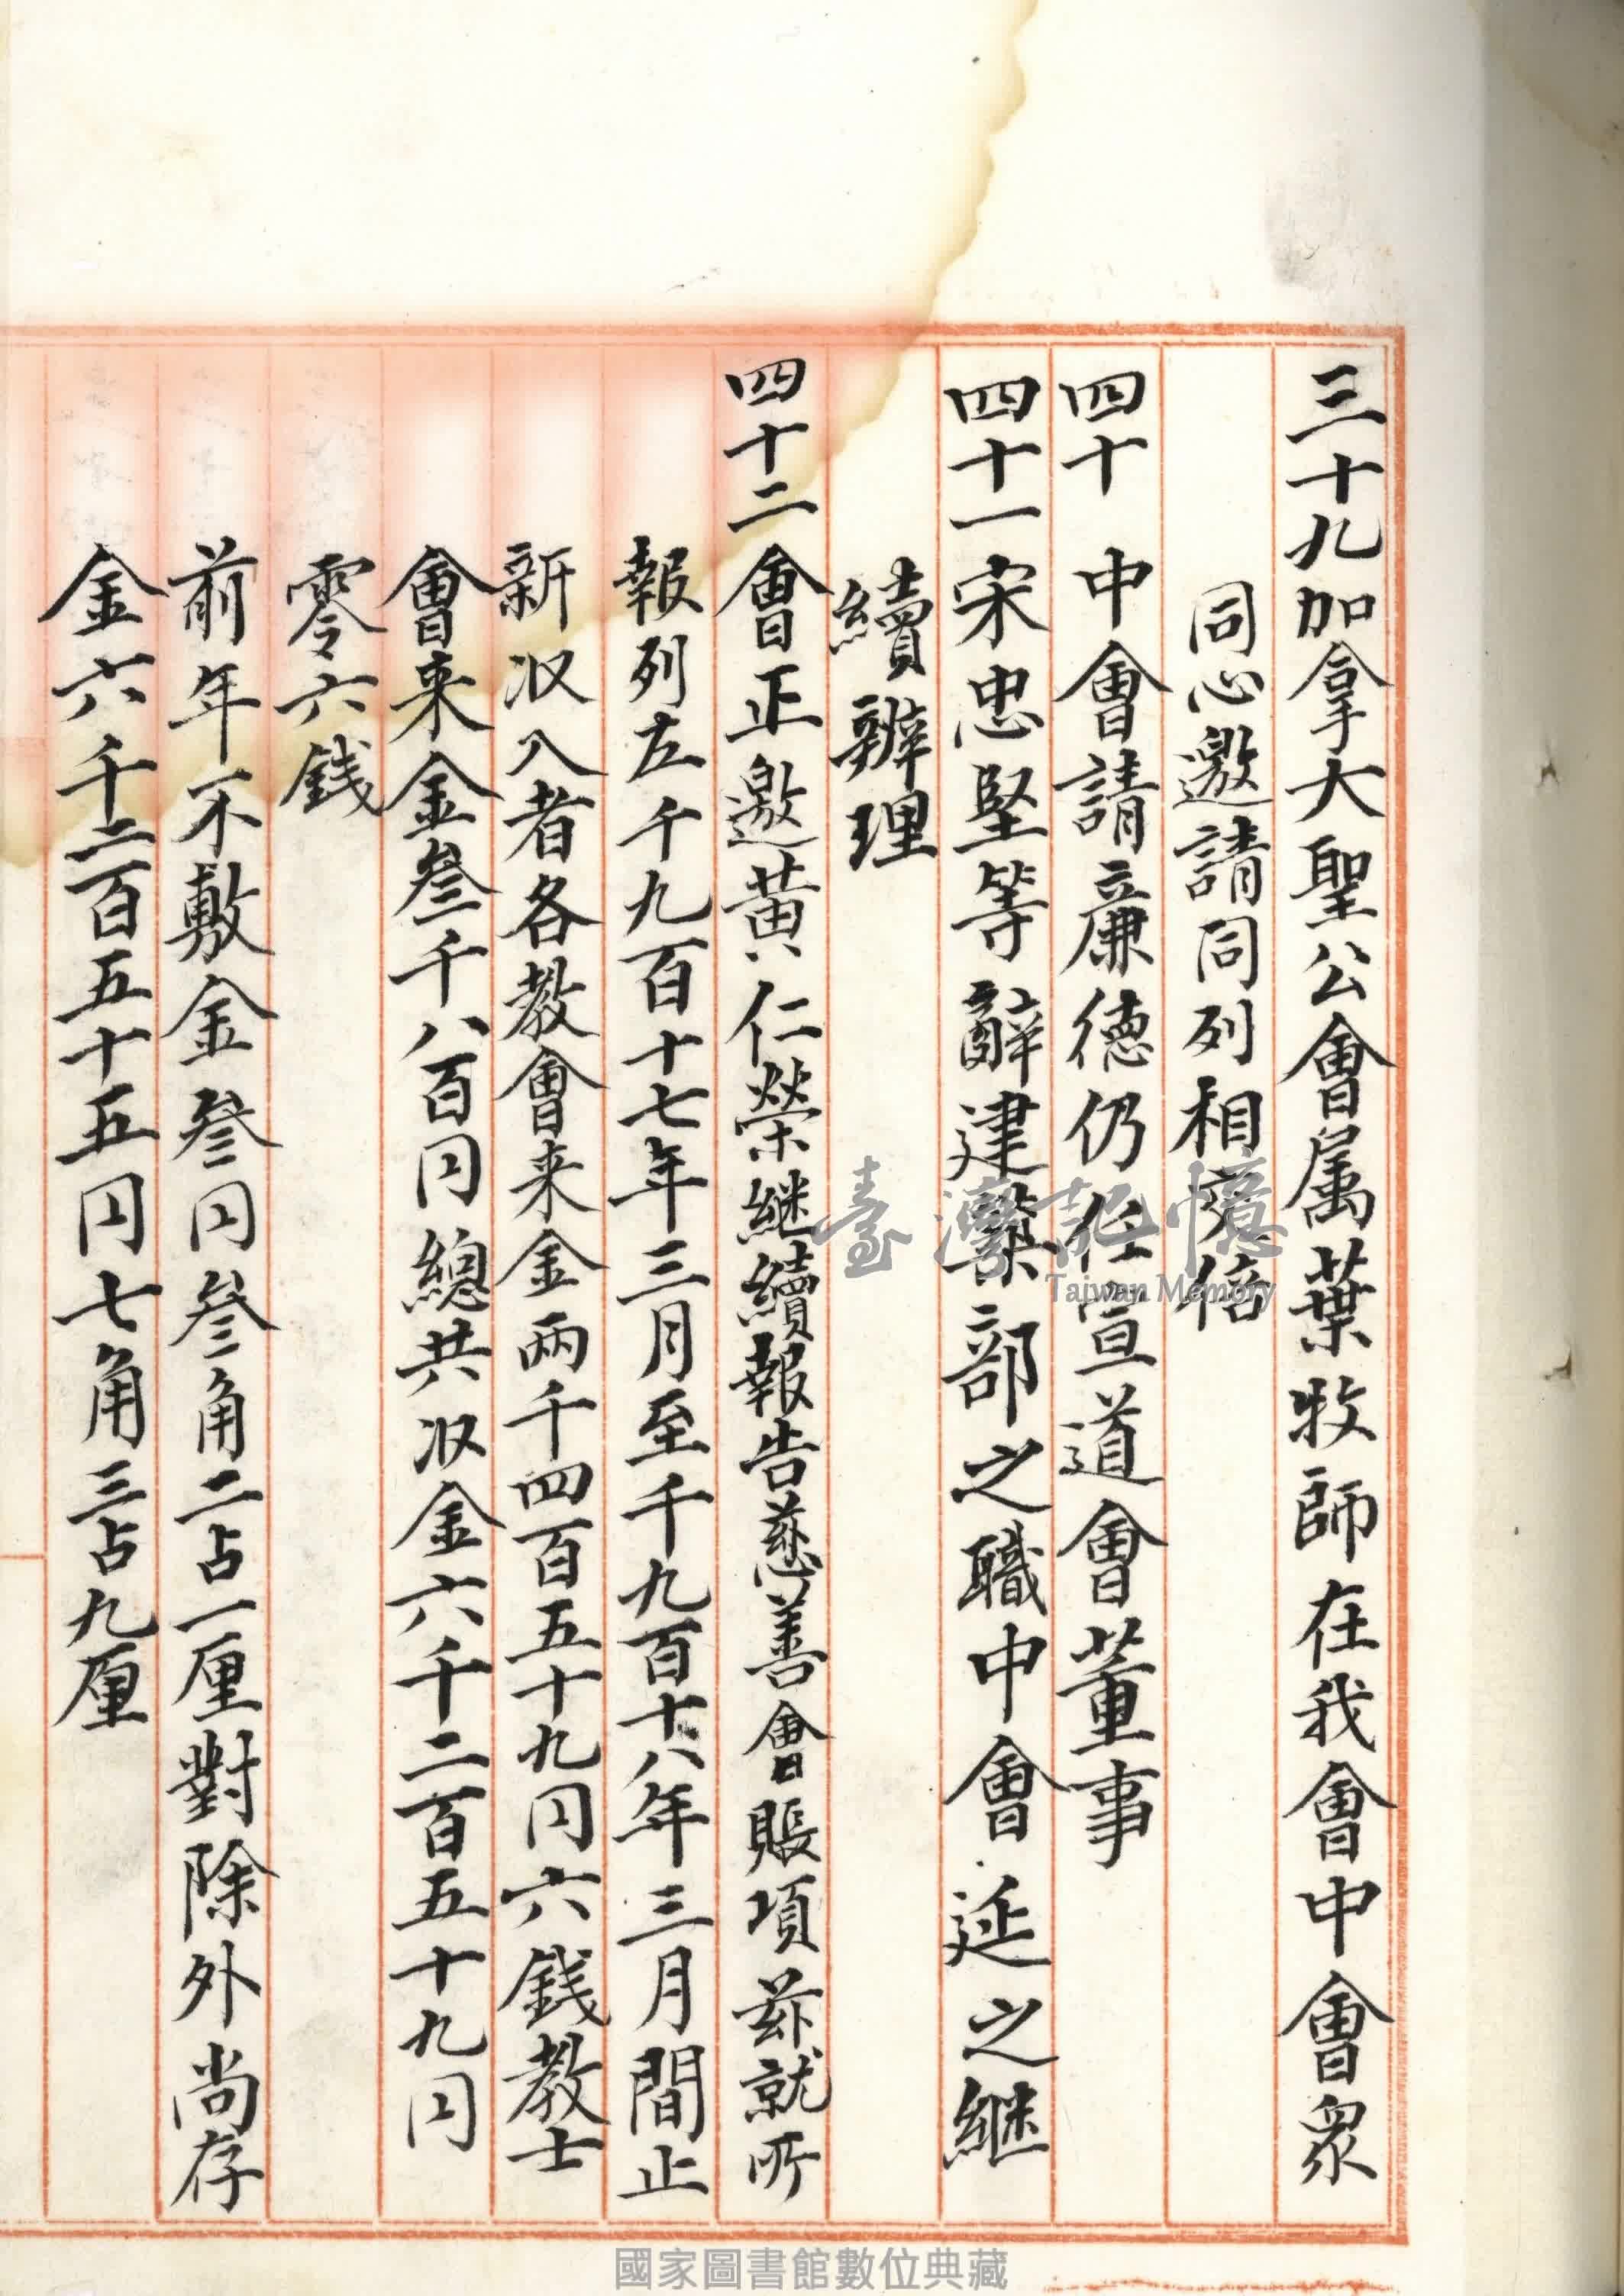 三十九加拿大聖公會属葉牧師在我會中會衆
同心邀請同列相交倍
四十 中會請廉德仍任宣道會董事
四十一宋忠堅等辭建築部之職中會延之継
續辦理
四十二會正邀黃仁榮継續報告慈善會賬項茲就所
報列左千九百十七年三月至千九百十八年三月間止
新収入者各教會来金兩千四百五十九円六銭教士
會来金叄千八百円總共収金六千二百五十九円
零六銭
前年不敷金叄円叄角二占一厘對除外尚存
金六千二百五十五円七角三占九厘
臺灣記憶
Taiwan Memory
國家圖書館數位典藏